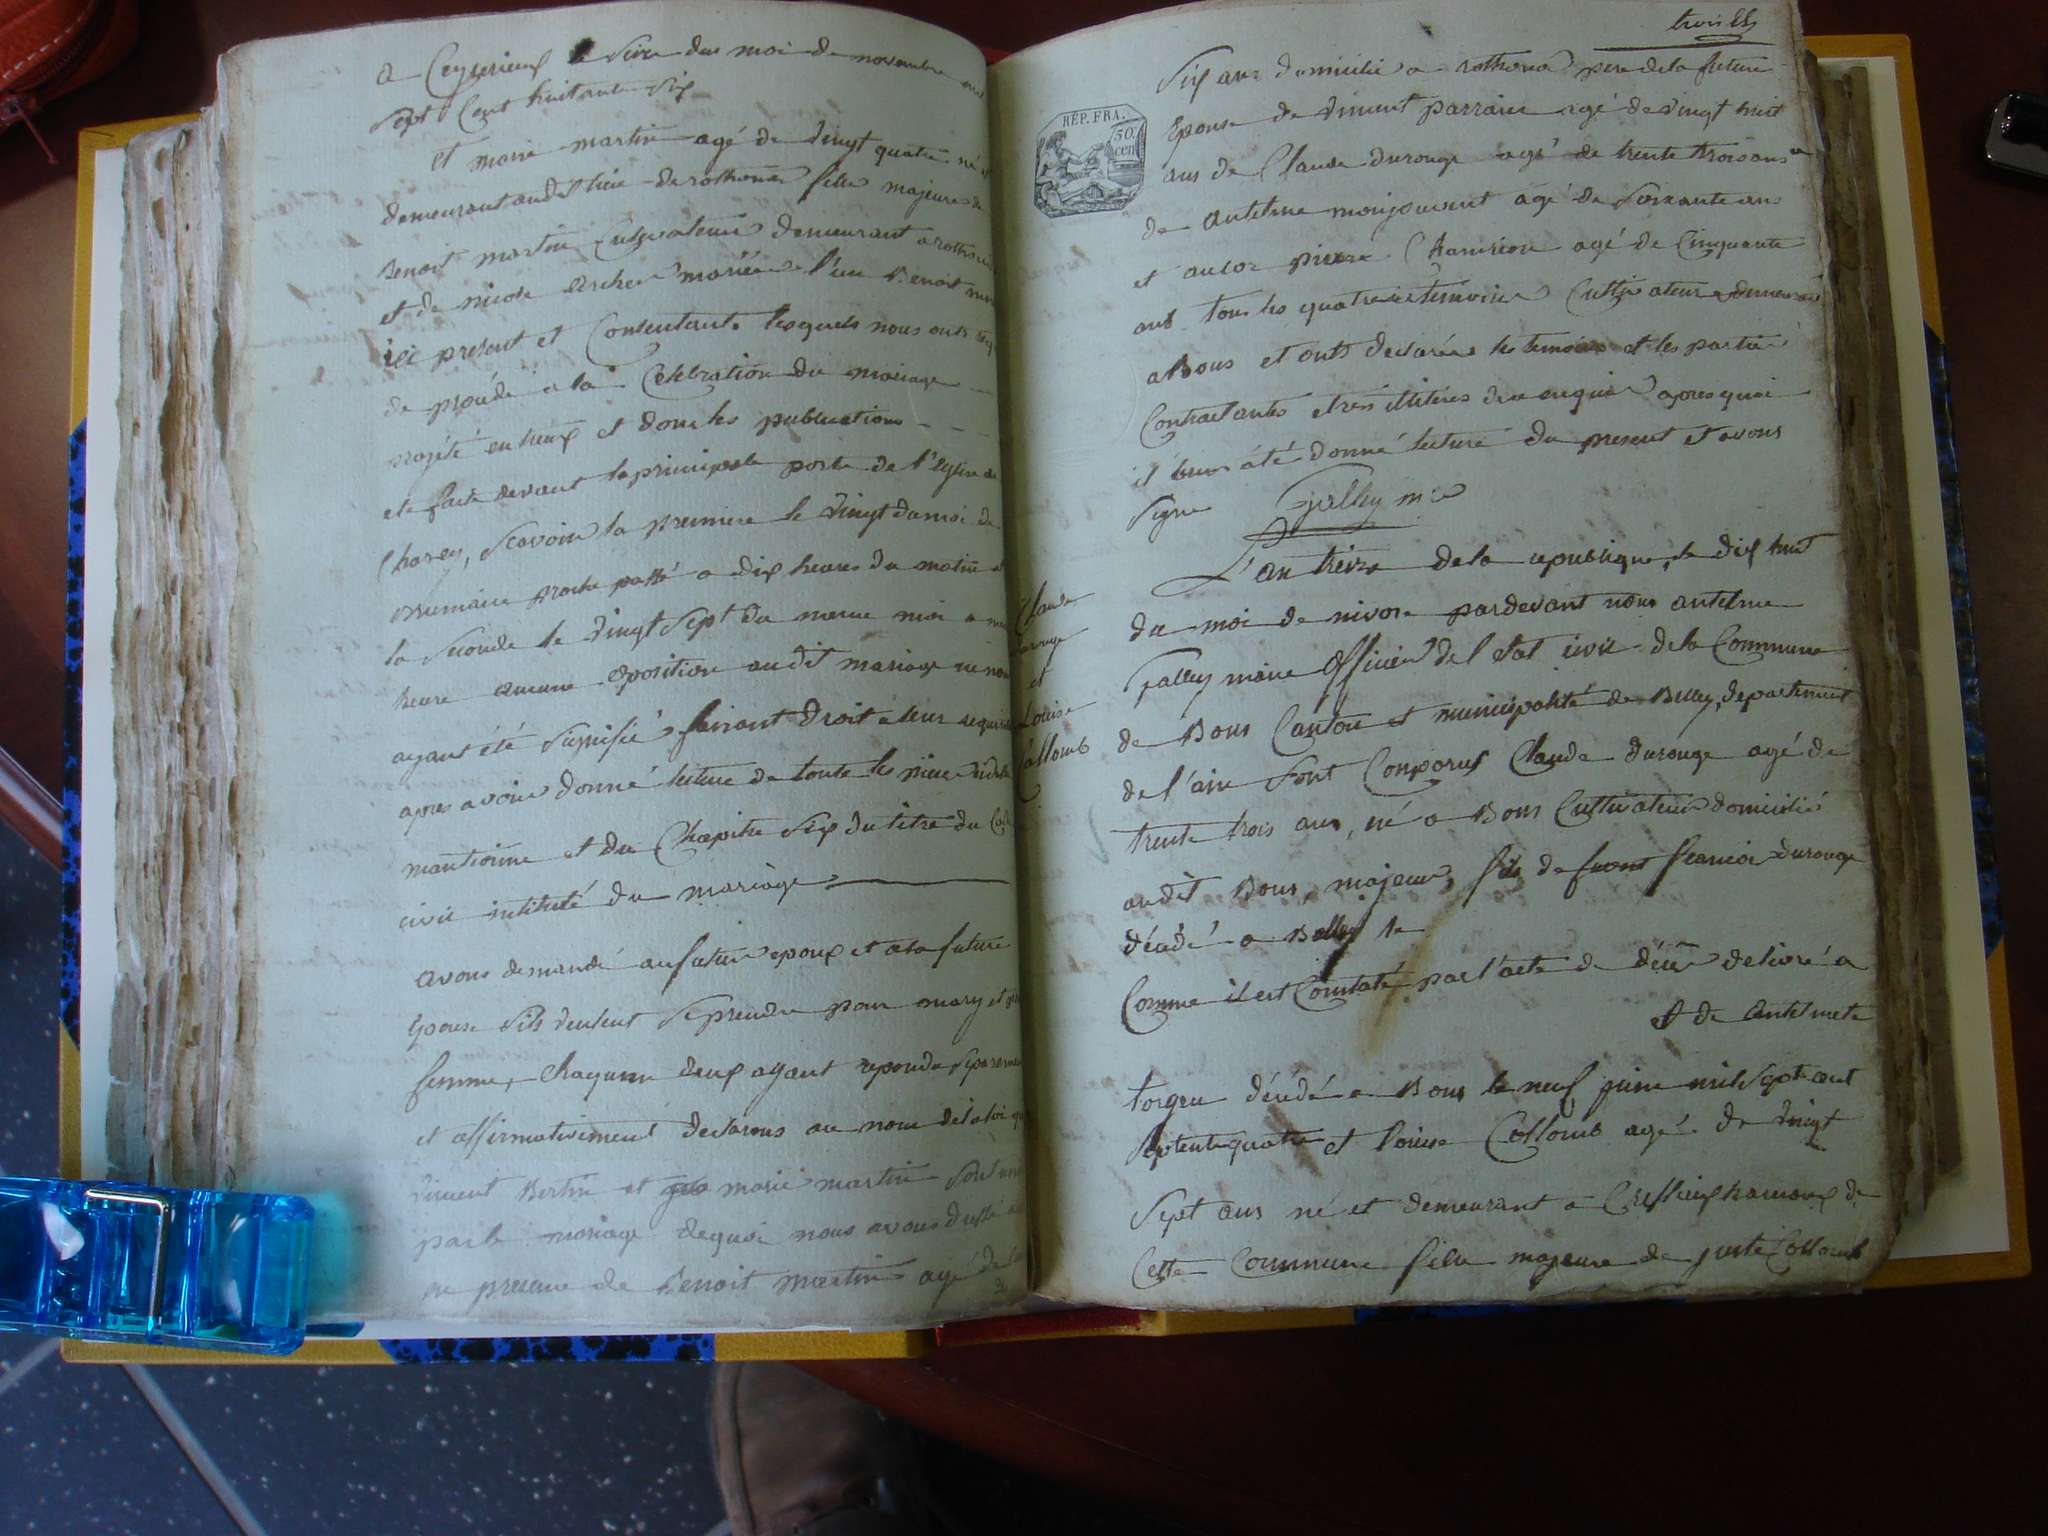 a Ceyserieux le seize du moi de novembre mil
sept Cent huitante six
et marie martin agé de vingt quatre né et
demeurant audit lieu de rothonod fille majeure de
Benoit martin Cultivateur demeurant a rothonod
et de nicole mariée l'un Benoit martin
ici present et Consentant lesquels nous ont requis
de procédé a la Celebration du mariage
projété entreux et dont les publications
ete faite devant la principale porte de l'Eglise de
Chazey, scavoir la premiere le vingt du moi de
Brumaire proche passé a dix heures du matin et
la seconde le vingt sept du meme moi a meme
heure aucune oposition audit mariage ne nous
ayant été signifié faisant droit a leur requisition
apres avoir donné lecture de toute les piece
mantionné et du Chapitre six du titre du Code
civil intitulé du mariage
avons demandé au futur epoux et a la future
Epouse s'ils veulent se prendre pour mary et pour
femme, chaqunne deux ayant repondu separement
et affirmativement declarons au nom de la loi que
vincent Bertin et marie martin sont unis
par le mariage dequoi nous avons dressé acte
en presence de Benoit martin agé de
trois
REP. FRA.
50
cen
Six ans domicilié a rothonod pere de la future
Epouse de vincent parraire agé de vingt huit
ans de Claude durouge agé de trente trois ans
de antelme monjouvent agé de soixante ans
et ancor pierre Chamrion agé de Cinquante
ans tous les quatre temoins Cultivateurs demeurant
a Bons et onts declarés les temoins et les partie
Contractantes etres illitérés de enquis apres quoi
il leur a été donné lecture du present et avons
signé Galley m
Claude
durouge
et
Louise
Collomb
L'an treize de la republique, le dix huit
du moi de nivose pardevant nous antelme
Galley maire officier de l etat civil de la Commune
de Bons Canton et municipalité de Belley, departement
de l'ain sont Comparus Claude durouge agé de
trente trois ans, né a Bons Cultivateur domicilié
audit Bons, majeur, fils de francoi durouge
décédé a Belley le
Comme il est Constaté par l'acte de décè delivré a
et de antelmete
torgeu décédé a Bons le neuf juin mil Sept cent
septentequatre et Louise Collomb agé de vingt
sept ans né et demeurant a Cressieux hamaux de
Cette Commune fille majeure de juste Collomb